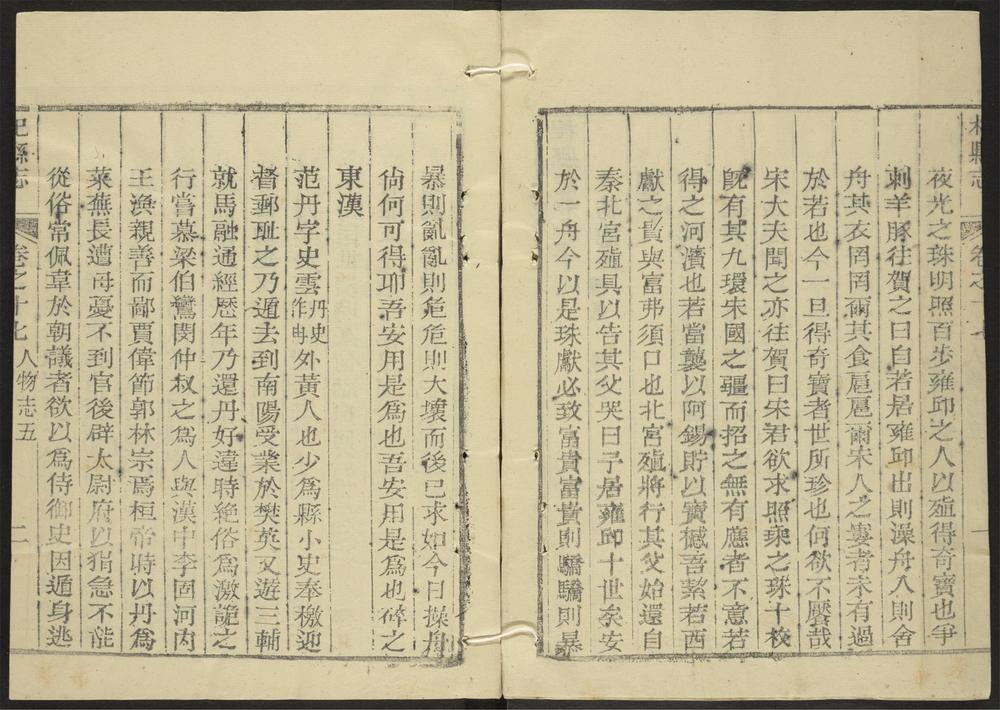 杞縣志
卷之十七
一
夜光之珠明照百步雍邱之人以𣨛得奇寶也爭
刺羊豚往賀之曰自若居雍邱出則澡舟入則舍
舟其衣罔罔爾其食扈扈爾宋人之婁者未有過
於若也今一旦得奇寶者世所珍也何欲不饜哉
宋大夫聞之亦往賀曰宋君欲求照乘之珠十枚
旣有其九環宋國之疆而招之無有應者不意若
得之河濱也若當襲以阿錫貯以寶櫝吾縶若西
獻之貴與富弗須口也北宮𣨛將行其父始還自
秦北宮𣨛具以告其父哭曰子居雍邱十世矣安
於一舟今以是珠獻必致富貴富貴則驕驕則暴
暴則亂亂則危危則大壞而後已求如今日操舟
尚何可得耶吾安用是爲也吾安用是爲也碎之
東漢
范丹字史雲丹史作冉外黃人也少爲縣小吏奉檄迎
督郵恥之乃遁去到南陽受業於樊英又遊三輔
就馬融通經歷年乃還丹好違時絶俗爲激詭之
行嘗慕梁伯鸞閔仲叔之爲人與漢中李固河內
王渙親善而鄙賈偉節郭林宗焉桓帝時以丹爲
萊蕪長遭母憂不到官後辟太尉府以狷急不能
從俗常佩韋於朝議者欲以爲侍御史因遁身逃
杞縣志
卷之十七 人物志五
二